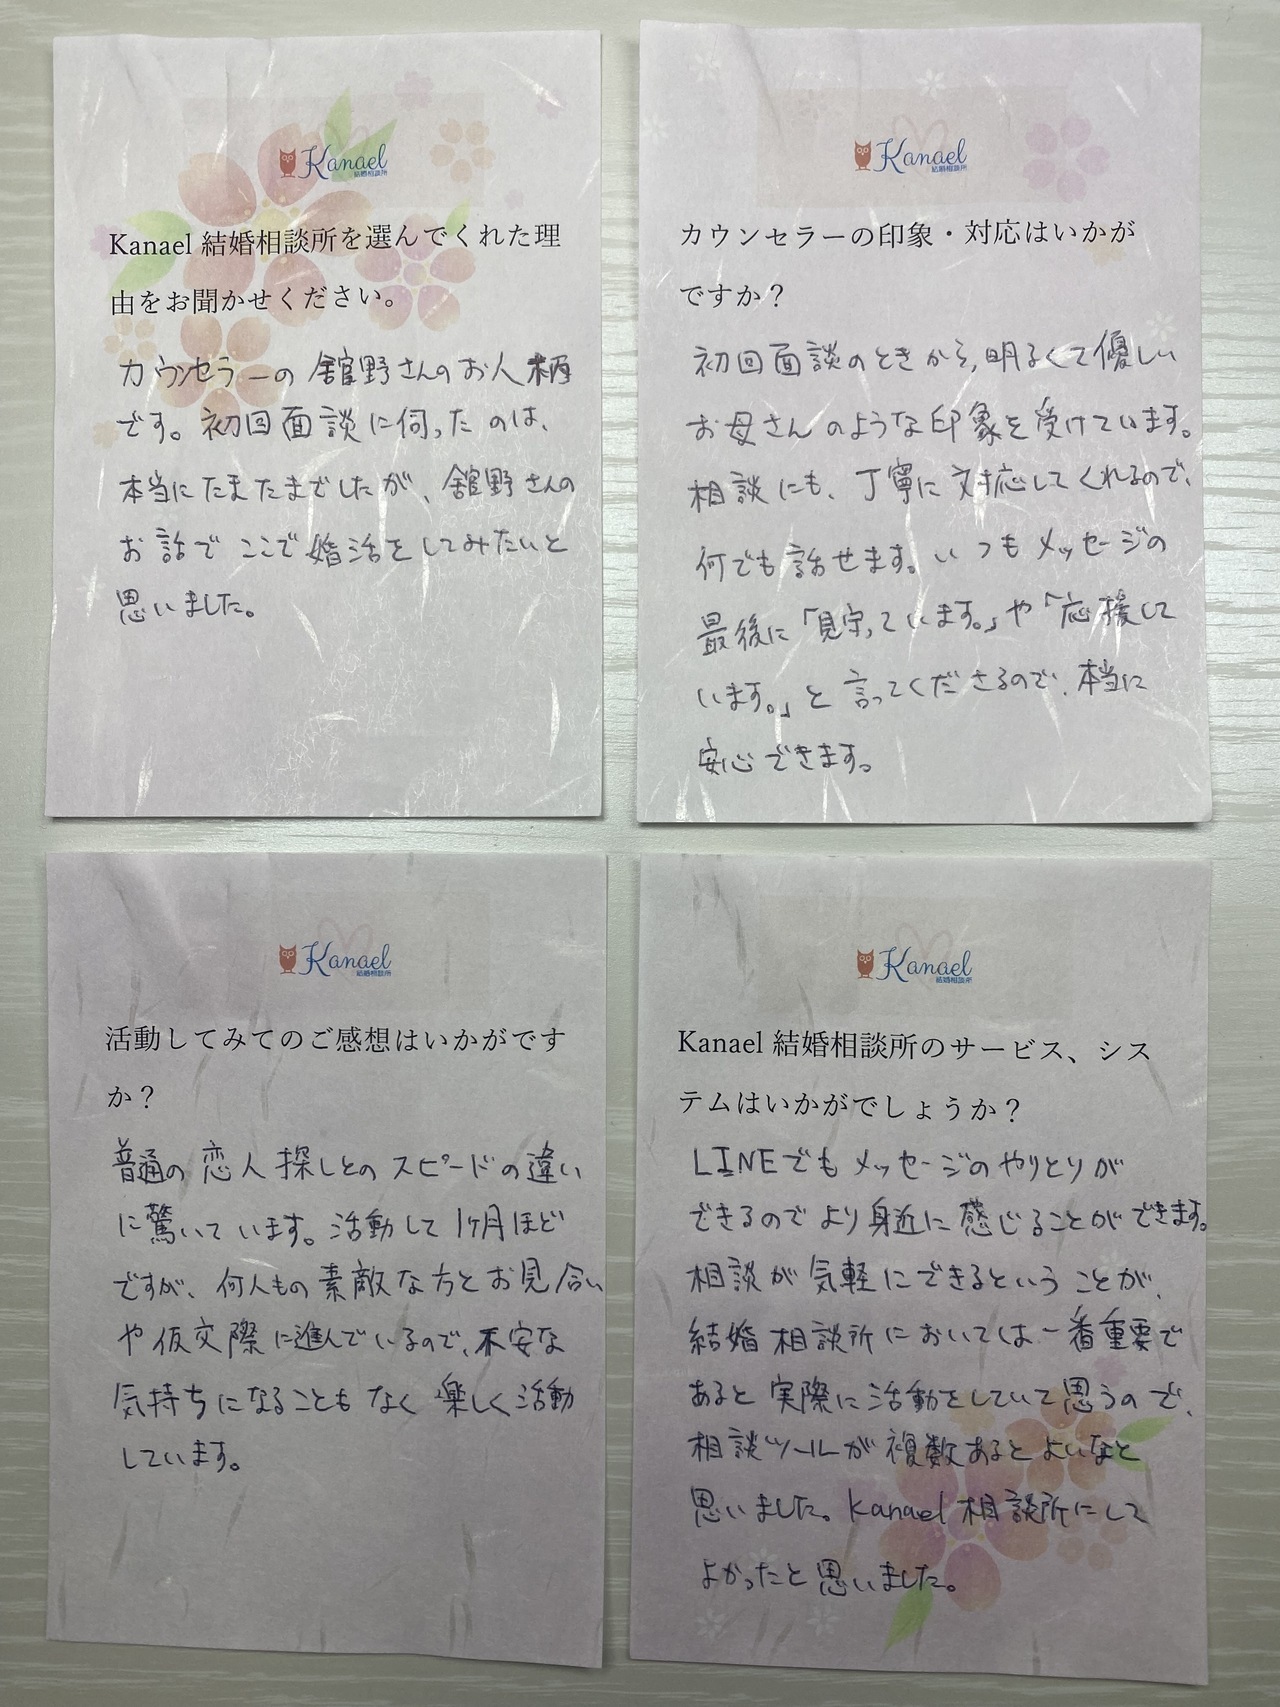 Kanael
結婚相談所
Kanael 結婚相談所を選んでくれた理
由をお聞かせください。
カウンセラーの舘野さんのお人柄
です。初回面談に伺ったのは、
本当にたまたまでしたが、舘野さんの
お話でここで婚活をしてみたいと
思いました。
Kanael
結婚相談所
カウンセラーの印象・対応はいかが
ですか？
初回面談のときから、明るくて優しい
お母さんのような印象を受けています。
相談にも、丁寧に対応してくれるので、
何でも話せます。いつもメッセージの
最後に「見守っています。」や「応援して
います。」と言ってくださるので、本当に
安心できます。
Kanael
結婚相談所
活動してみてのご感想はいかがです
か？
普通の恋人探しとのスピードの違い
に驚いています。活動して1ヶ月ほど
ですが、何人もの素敵な方とお見合い
や仮交際に進んでいるので、不安な
気持ちになることもなく楽しく活動
しています。
Kanael
結婚相談所
Kanael 結婚相談所のサービス、シス
テムはいかがでしょうか？
LINEでもメッセージのやりとりが
できるのでより身近に感じることができます。
相談が気軽にできるということが、
結婚相談所においては一番重要で
あると実際に活動をしていて思うので、
相談ツールが複数あるとよいなと
思いました。Kanael相談所にして
よかったと思いました。